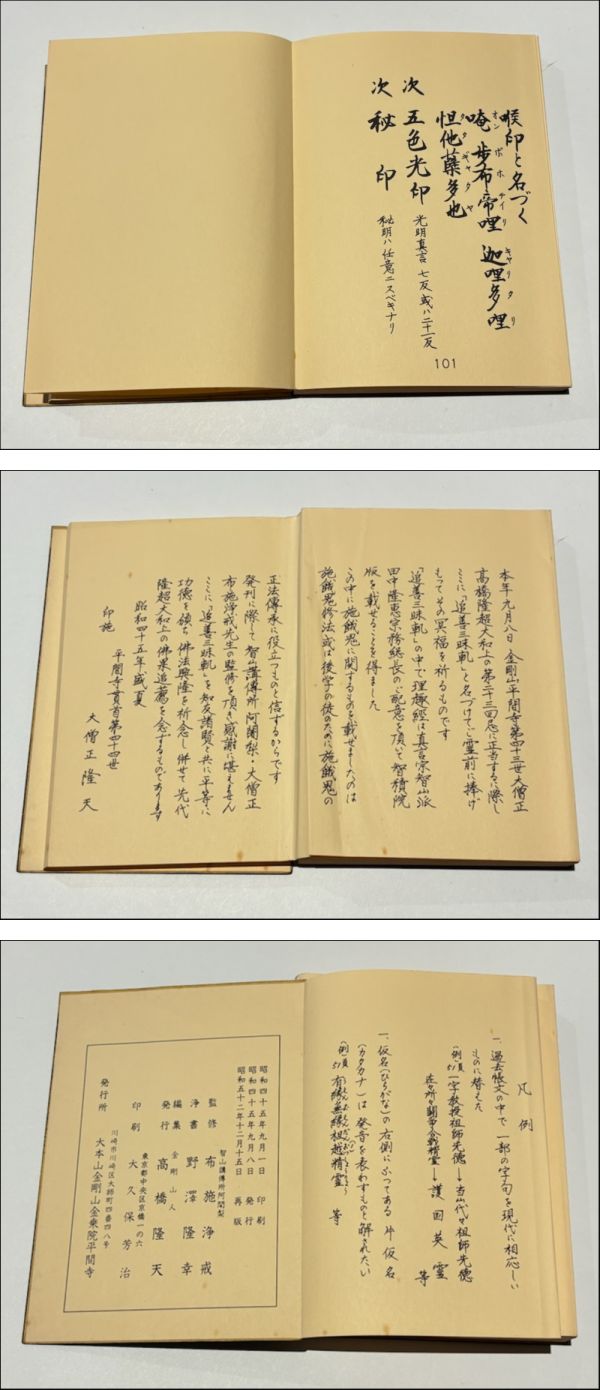 喉印と名づく
唵 歩布帝哩 迦哩多哩
オン ボホテイリ キャリタリ
怛他蘖多也
タタギャタヤ
次 五色光印 光明真言 七反或ハ二十一反
次 秘印 秘明ハ任意ニスベキナリ
101
本年九月八日 金剛山平間寺第四十三世大僧正
高橋隆超大和上の第二十三回忌に正当するに際し
ここに「追善三昧軌」と名づけてご霊前に捧げ
もってその冥福を祈るものです
「追善三昧軌」の中で理趣経は真言宗智山派
田中隆恵宗務総長のご配意を頂いて智積院
版を載せることを得ました
この中に施餓鬼に関するものを載せましたのは
施餓鬼修法或は後学の徒のために施餓鬼の
正法傳承に役立つものと信ずるからです
発刊に際して智山講傳所阿闍梨・大僧正
布施浄戒先生の監修を頂き感謝に堪えません
ここに「追善三昧軌」を知友諸賢と共に平等に
功徳を頒ち 佛法興隆を祈念し 併せて先代
隆超大和上の佛果追薦を念ずるものであります
昭和四十五年盛夏
平間寺貫首第四十四世
印施 大僧正 隆天
凡例
一、過去帳文の中で 一部の字句を現代に相応しい
ものに替えた
一字教授祖師先徳→当山代々祖師先徳
→護国英霊 等
一、仮名(ひらがな)の右側にふってある 片仮名
(カタカナ)は 発音を表わすものと解されたい
有縁無縁祖越精霊 等
昭和四十五年九月一日 印刷
昭和四十五年九月八日 発行
昭和五十二年十二月十五日 再版
監修 智山講傳所阿闍梨 布施浄戒
浄書 野澤隆幸
編集 発行 金剛山人 高橋隆天
東京都中央区京橋一の六
印刷 大久保芳治
川崎市川崎区大師町四番四八号
発行所 大本山金剛山金乗院平間寺